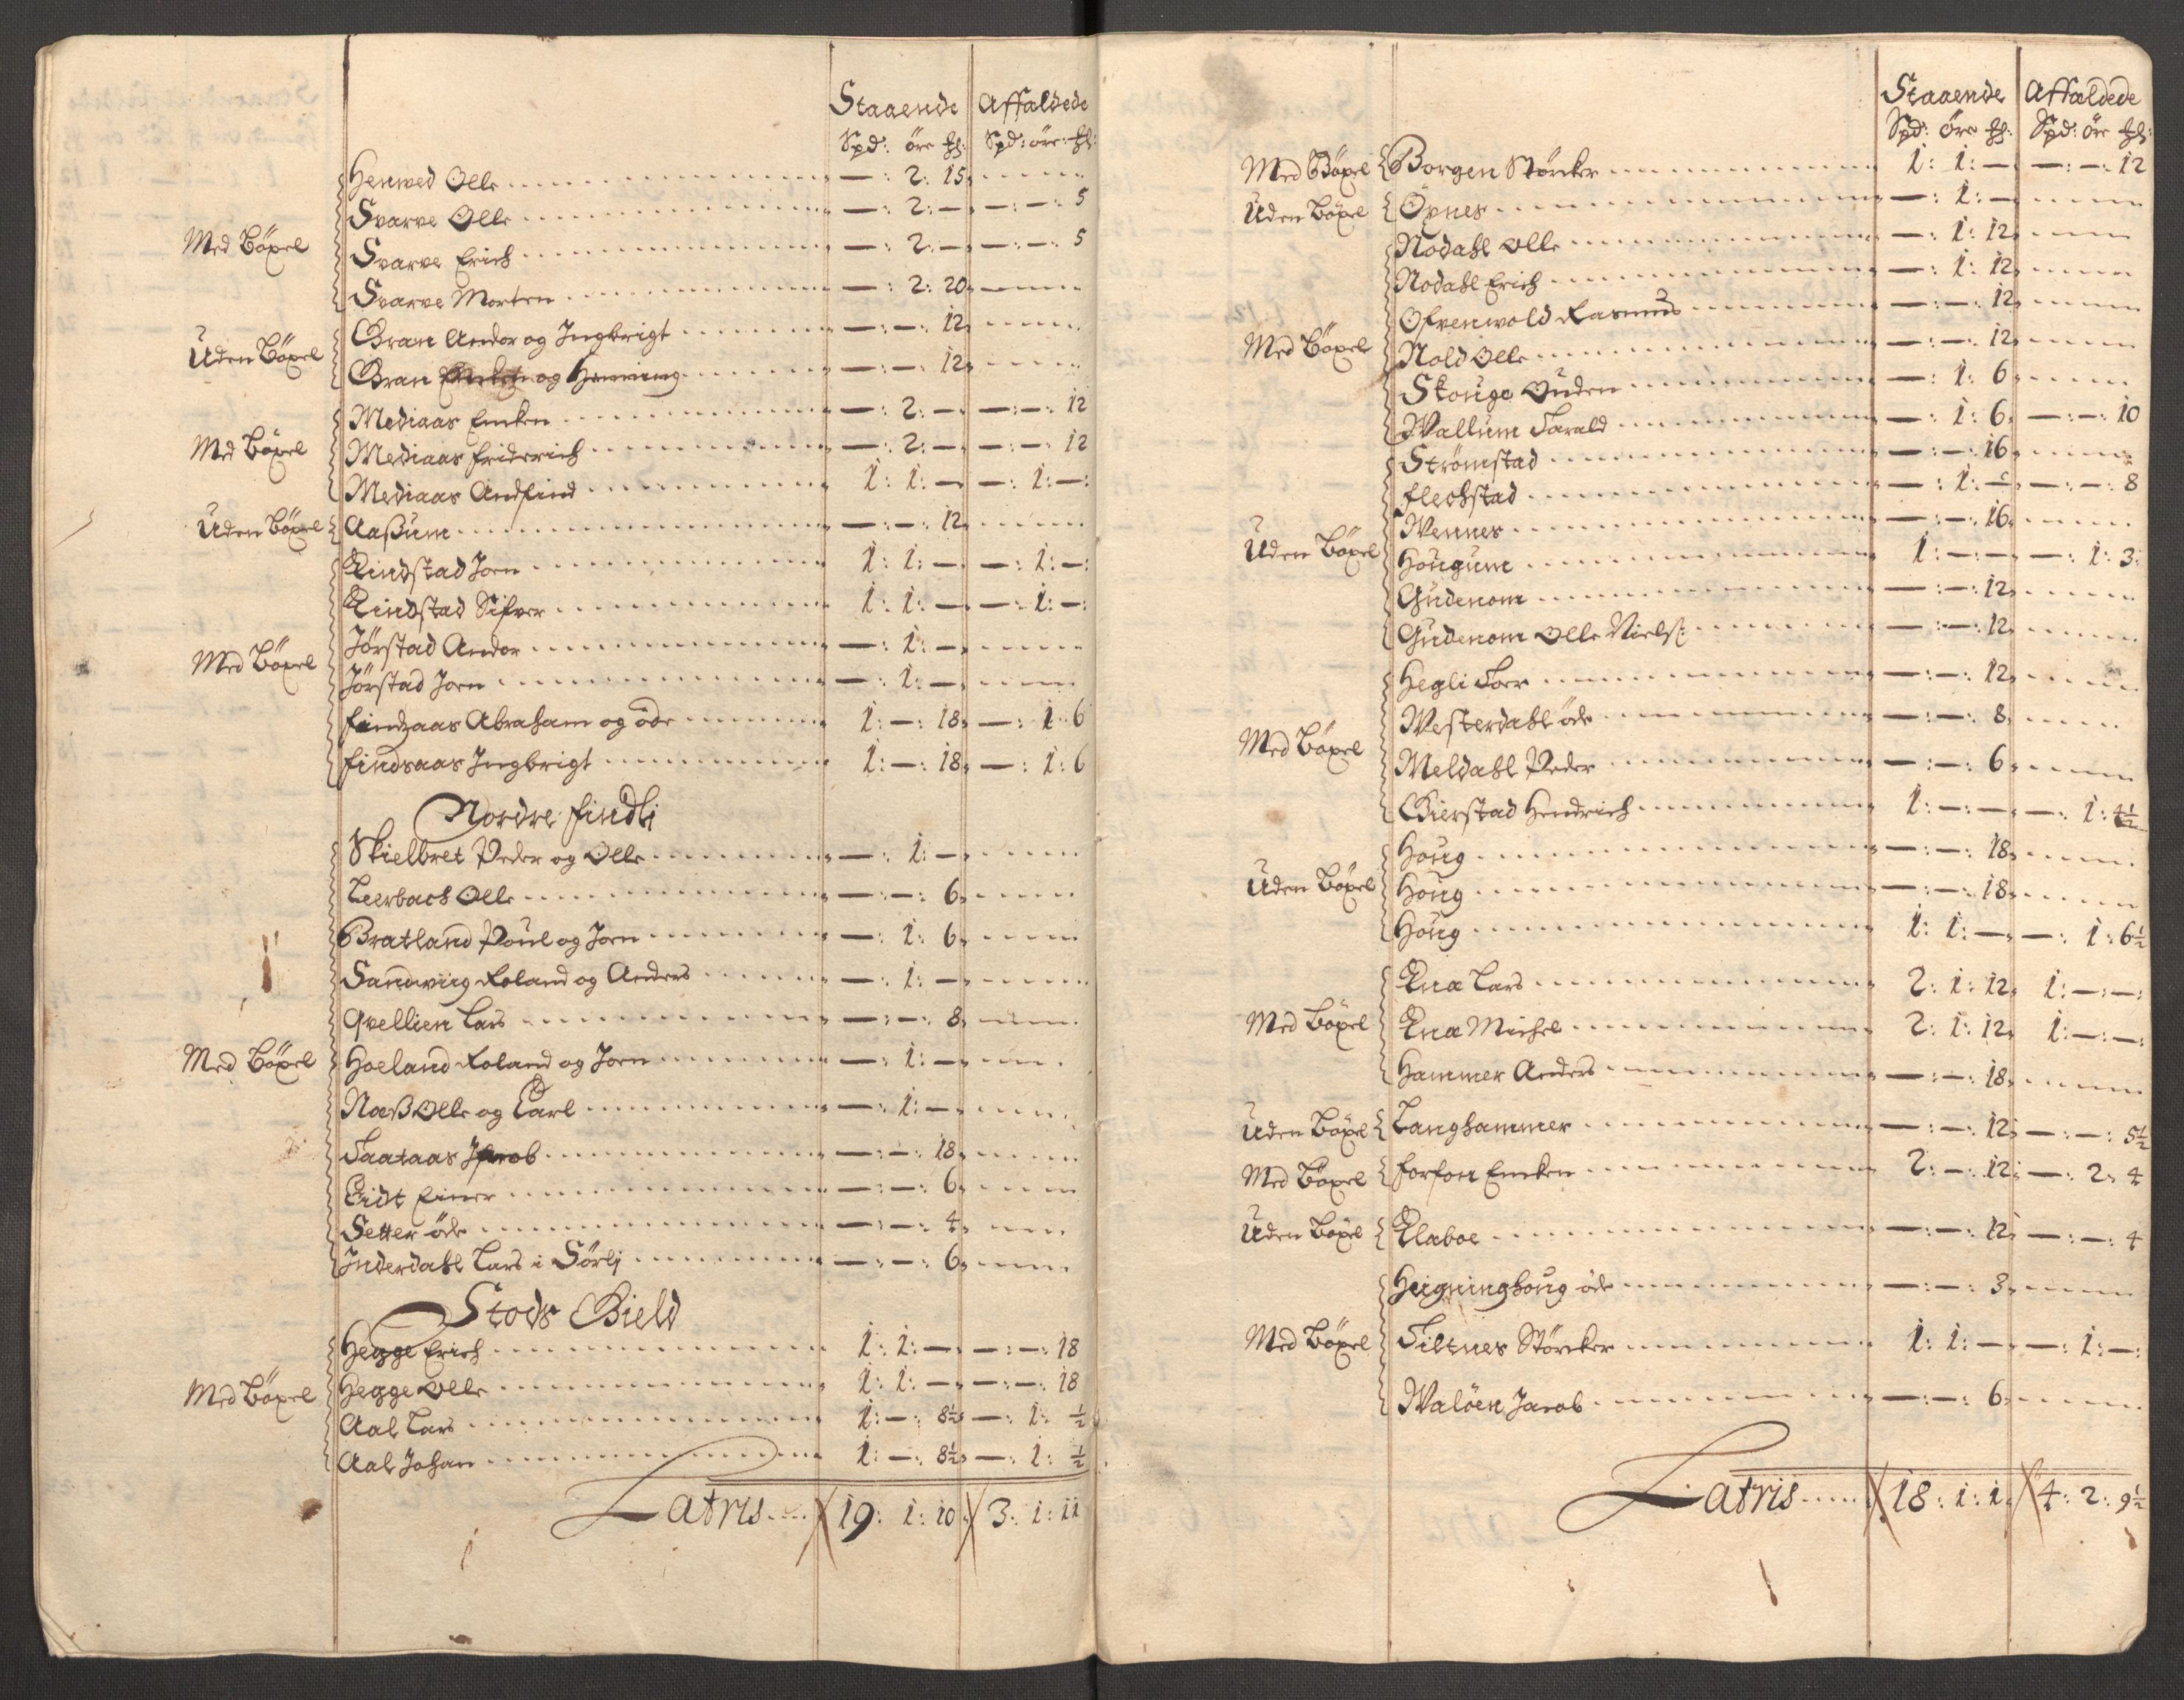 Staaende Affældede
Spd: öre ₰: Spd: öre ₰:
Henwed Olle — : 2: 15
Svarve Olle — : 2: — — : — : 5
Med Böxel Svarve Erich — : 2: — — : — : 5
Svarve Morten — : 2: 20
Gran Andor og Ingbrigt — : — : 12
Uden Böxel
Gran og Henning — : — : 12
Mediaas Emken — : 2: — — : — : 12
Med Böxel Mediaas Friderich — : 2: — — : — : 12
Mediaas Andfind 1: 1: — — : 1: —
Uden Böxel Aaßum — : — : 12
Kindstad Joen 1: 1: — — : 1: —
Kindstad Sifver 1: 1: — — : 1: —
Jörstad Andor — : 1: —
Med Böxel Jörstad Joen — : 1: —
Findzaas Abraham og öde 1: — : 18 — : 1: 6
Findsaas Ingbrigt 1: — : 18 — : 1: 6
Nordre Findli
Skielbret Peder og Olle — : 1: —
Leerbach Olle — : — : 6
Bratland Poul og Joen — : 1: 6
Sandwiig Roland og Anders — : 1: —
Qvellien Lars — : — : 8
Med Böxel Hoeland Roland og Joen — : 1: —
Naß Olle og Carl — : 1: —
Taataas Jacob — : — : 18
Eidt Einer — : — : 6
Setter öde — : — : 4
Inderdahl Lars i Sörlj — : — : 6
Stods Gield
Hegge Erich 1: 1: — — : — : 18
Med Böxel Hegge Olle 1: 1: — — : — : 18
Aal Lars 1: — : 8½ — : 1: ½
Aal Johan 1: — : 8½ — : 1: ½
Latris 19: 1: 10 3: 1: 11
Staaende Affældede
Spd: öre ₰: Spd: öre ₰:
Med Böxel Borgen Störcker 1: 1: — — : — : 12
Uden Böxel Öxnes — : 1: —
Nodahl Olle — : 1: 12
Nodahl Erich — : 1: 12
Ofvenwold Rasmus — : — : 12
Med Böxel Nold Olle — : — : 12
Skouge Ouden — : 1: 6
Wallum Harald — : 1: 6 — : — : 10
Strömstad — : — : 16
Flechstad — : 1: — — : — : 8
Wennes — : — : 16
Uden Böxel Hougum 1: — : — — : 1: 3
Gudenom — : — : 12
Gudenom Olle Niels: — : — : 12
Hegli Toer — : — : 12
Westerdahl öde — : — : 8
Med Böxel
Meldahl Peder — : — : 6
Gierstad Hendrich 1: — : — — : 1: 4½
Houg — : — : 18
Uden Böxel Houg — : — : 18
Houg 1: 1: — — : 1: 6½
Qua Lars 2: 1: 12 1: — : —
Med Böxel Qua Michel 2: 1: 12 1: — : —
Hammer Anders — : — : 18
Uden Böxel Langhammer — : — : 12 — : — : 5½
Med Böxel Forfon Emken 2: — : 12 — : 2: 4
Uden Böxel Klaboe — : — : 12 — : — : 4
Heigninghoug öde — : — : 3
Med Böxel Tiltnes Störcker 1: 1: — — : 1: —
Walöen Jacob — : — : 6
Latris 18: 1: 1 4: 2: 9½